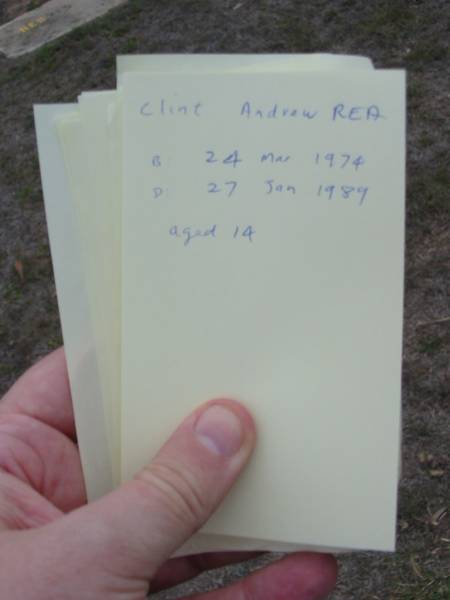 Clint Andrew REA
B 24 Mar 1974
D 27 Jan 1989
aged 14